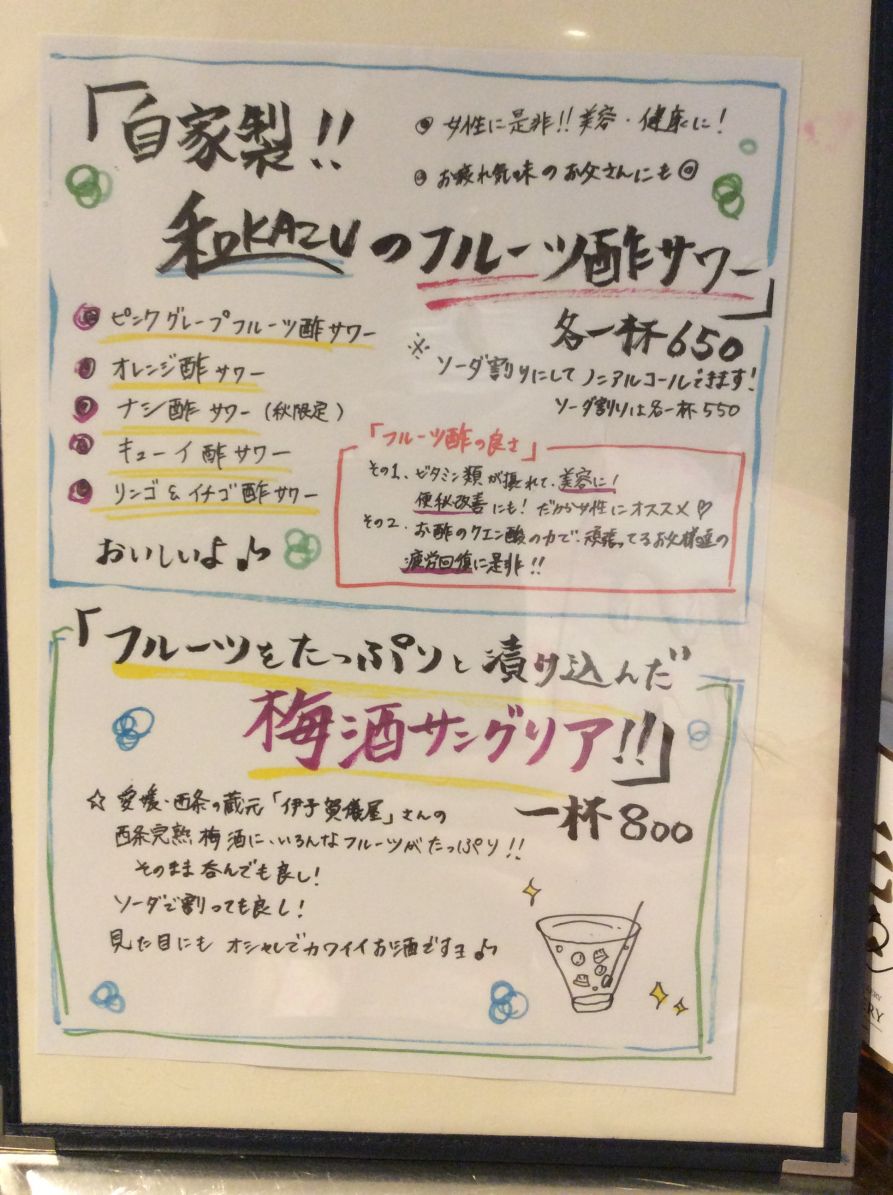 「自家製!!
◎ 女性に是非!! 美容・健康に!
◎ お疲れ気味のお父さんにも◎
和KAZUのフルーツ酢サワー」
各一杯650
◎ ピンクグレープフルーツ酢サワー
◎ オレンジ酢サワー
◎ ナシ酢サワー (秋限定)
◎ キューイ酢サワー
◎ リンゴ&イチゴ酢サワー
おいしいよ♪
※ ソーダ割りにしてノンアルコールできます!
ソーダ割りは各一杯550
「フルーツ酢の良さ」
その1、ビタミン類が摂れて、美容に!
便秘改善にも! だから女性にオススメ♡
その2、お酢のクエン酸の力で、頑張ってるお父様達の
疲労回復に是非!!
「フルーツをたっぷりと漬け込んだ
梅酒サングリア!!」
一杯800
☆ 愛媛・西条の蔵元「伊予賀儀屋」さんの
西条完熟梅酒に、いろんなフルーツがたっぷり!!
そのまま呑んでも良し!
ソーダで割っても良し!
見た目にもオシャレでカワイイお酒ですヨ♪